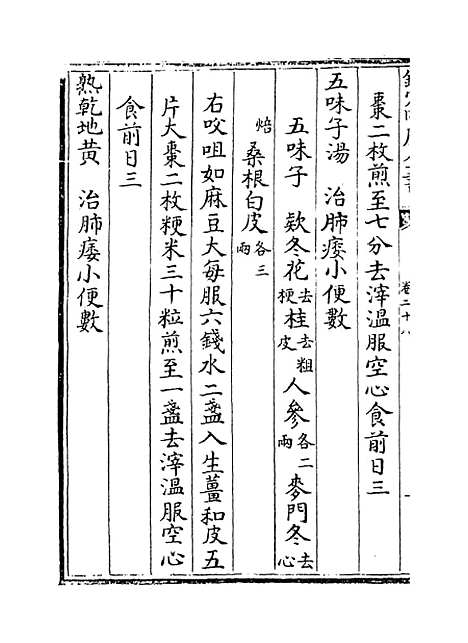 卷二十八
棗二枚煎至七分去滓溫服空心食前日三
五味子湯　治肺痿小便數
五味子　欵冬花去梗桂去粗皮人參各二兩麥門冬去心
焙桑根白皮各三兩
右㕮咀如麻豆大每服六錢水二盞入生薑和皮五
片大棗二枚粳米三十粒煎至一盞去滓溫服空心
食前日三
熟乾地黃　治肺痿小便數